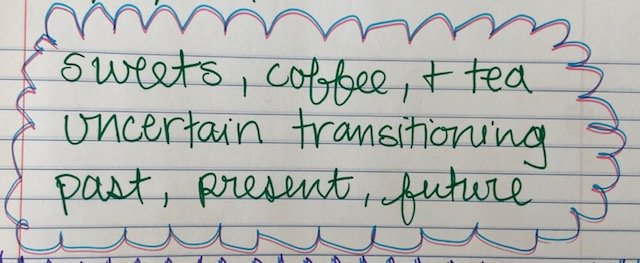 sweets, coffee, + tea
uncertain transitioning
past, present, future